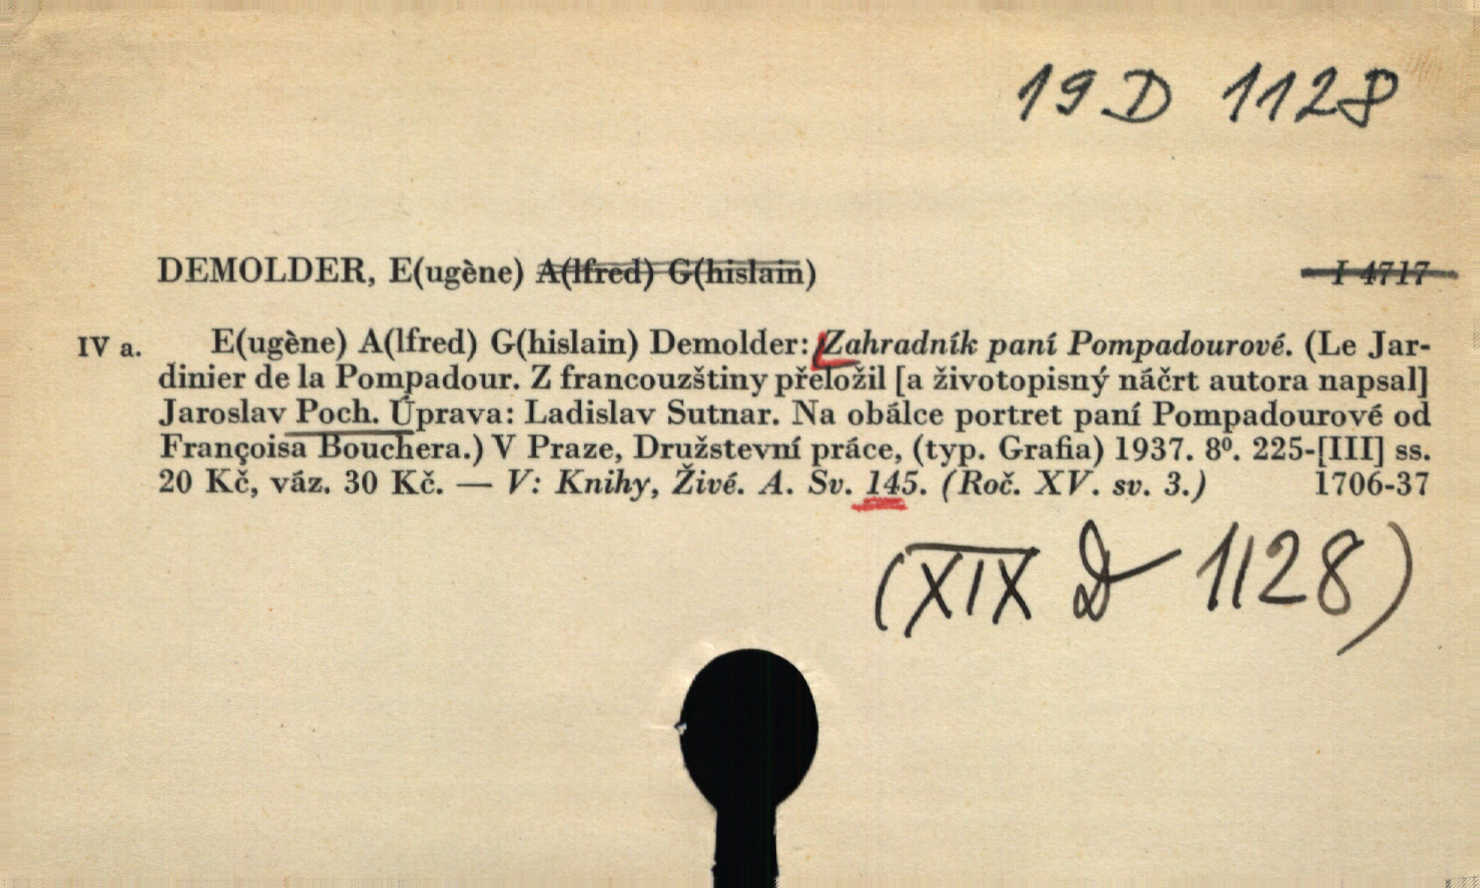 19 D 1128
DEMOLDER, E(ugène) A(lfred) G(hislain) I 4717
IV a. E(ugène) A(lfred) G(hislain) Demolder: Zahradník paní Pompadourové. (Le Jar-
dinier de la Pompadour. Z francouzštiny přeložil [a životopisný náčrt autora napsal]
Jaroslav Poch. Úprava: Ladislav Sutnar. Na obálce portret paní Pompadourové od
Françoisa Bouchera.) V Praze, Družstevní práce, (typ. Grafia) 1937. 8⁰. 225-[III] ss.
20 Kč, váz. 30 Kč. — V: Knihy, Živé. A. Sv. 145. (Roč. XV. sv. 3.) 1706-37
(XIX D 1128)